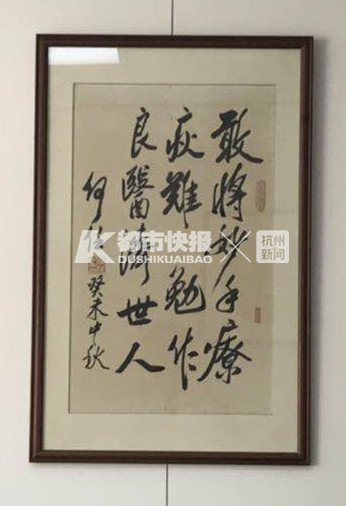 敢将妙手療
疾難勉作
良醫濟世人
何
癸未中秋
都市快报
DUSHIKUAIBAO
杭州
新闻